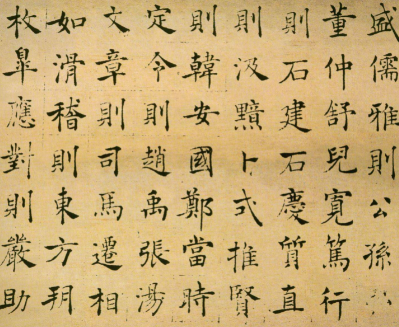 盛儒雅則公孫弘
董仲舒兒寬篤行
則石建石慶質直
則汲黯卜式推賢
則韓安國鄭當時
定令則趙禹張湯
文章則司馬遷相
如滑稽則東方朔
枚臯應對則嚴助